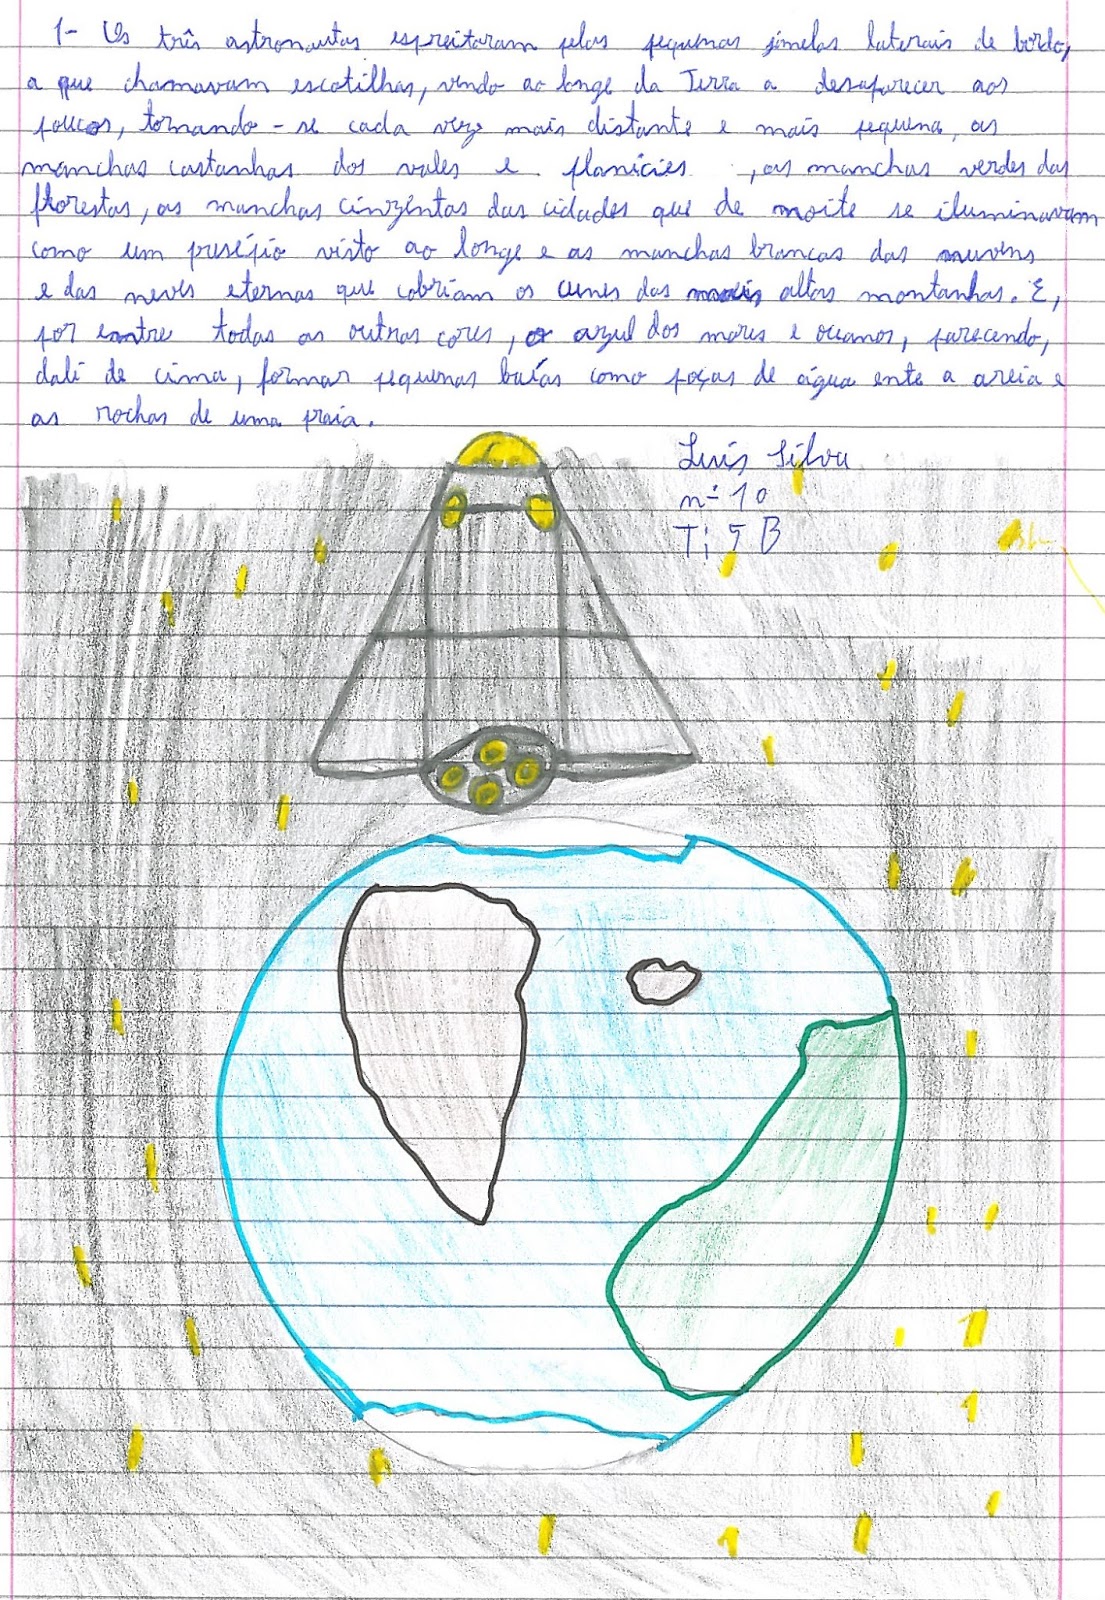 1- Os três astronautas espreitaram pelas pequenas janelas laterais de bordo,
a que chamavam escotilhas, vendo ao longe da Terra a desaparecer aos
poucos, tornando-se cada vez mais distante e mais pequena, as
manchas castanhas dos vales e planícies, as manchas verdes das
florestas, as manchas cinzentas das cidades que de noite se iluminavam
como um presépio visto ao longe e as manchas brancas das nuvens
e das neves eternas que cobriam os cumes das mais altas montanhas. E,
por entre todas as outras cores, o azul dos mares e oceanos, parecendo,
dali de cima, formar pequenas baías como poças de água ente a areia e
as rochas de uma praia.
Luís Silva
nº 10
T: 5 B